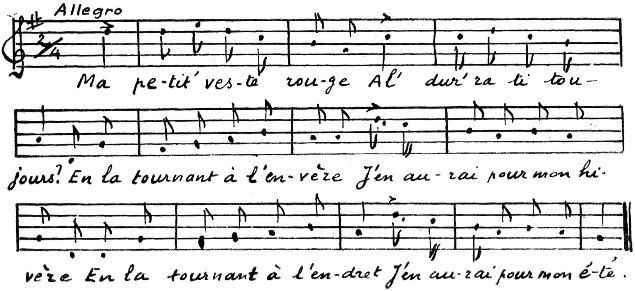 Allegro
2/4
Ma pe-tit' ves-te rou-ge Al' dur'ra ti tou-
jours? En la tournant à l'en-vère J'en au-rai pour mon hi-
vère En la tournant à l'en-dret J'en au-rai pour mon é-té.